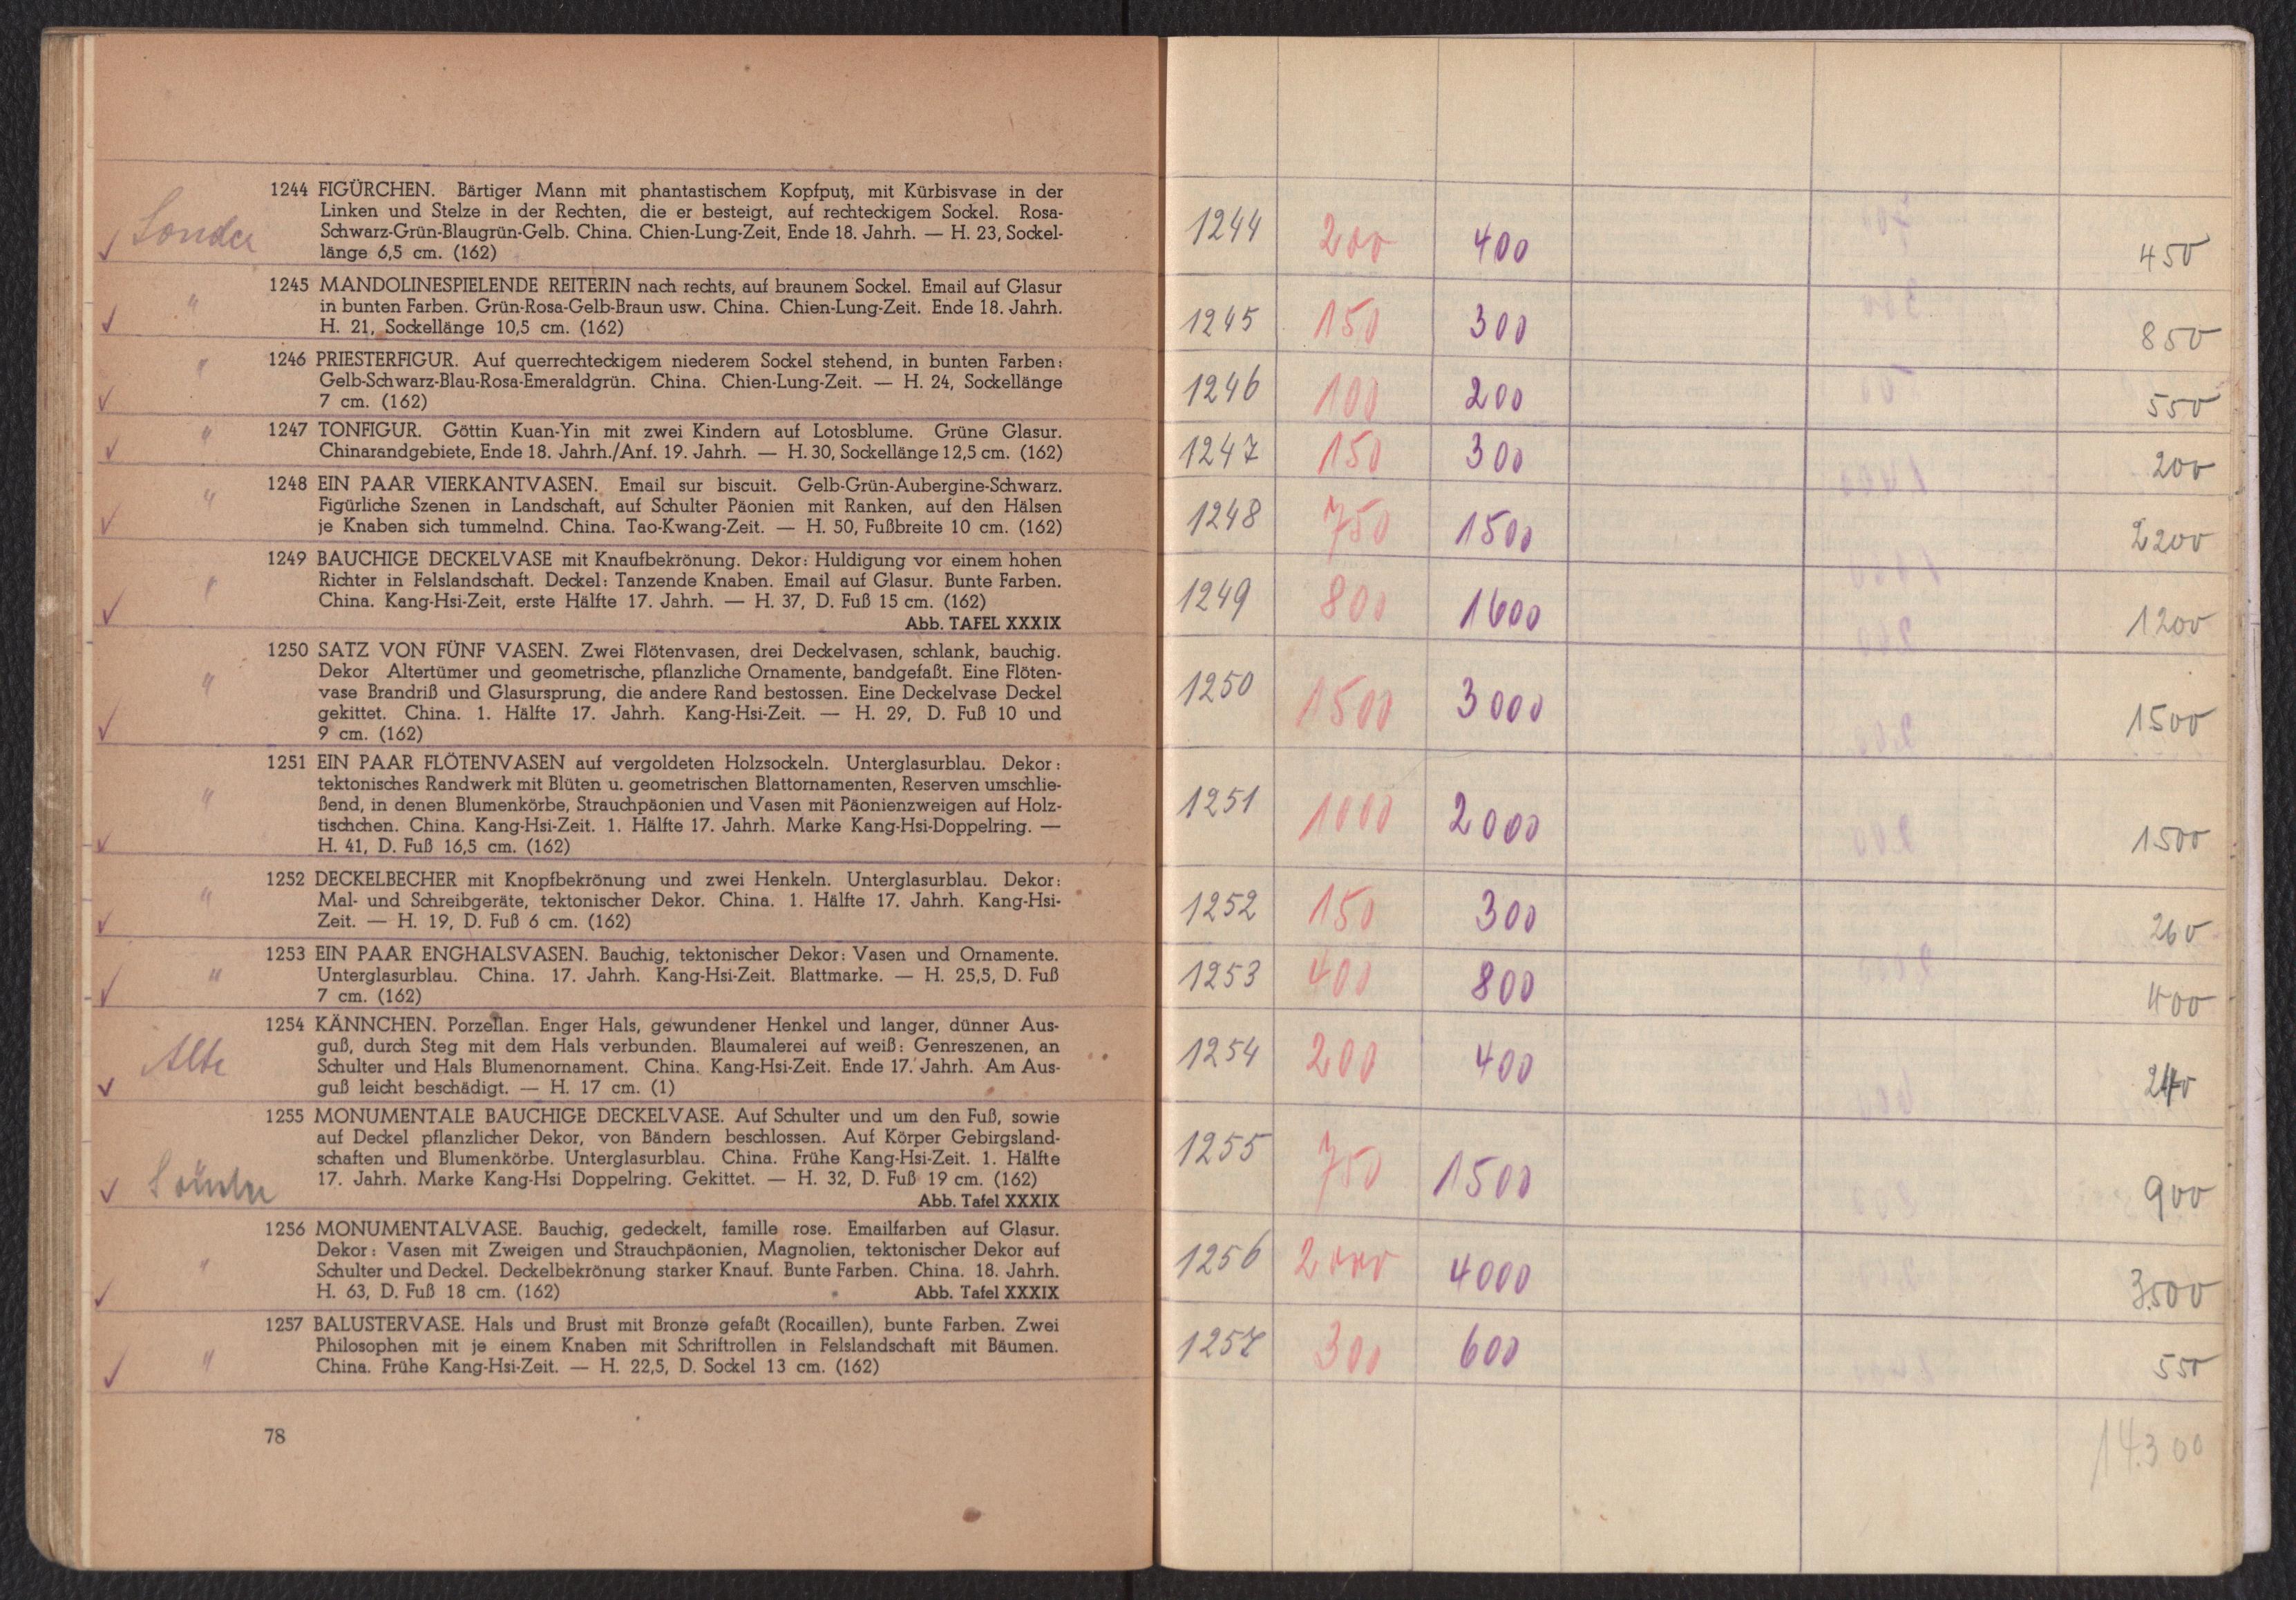 1244 FIGÜRCHEN. Bärtiger Mann mit phantastischem Kopfputz, mit Kürbisvase in der
Linken und Stelze in der Rechten, die er besteigt, auf rechteckigem Sockel. Rosa-
Schwarz-Grün-Blaugrün-Gelb. China. Chien-Lung-Zeit, Ende 18. Jahrh. — H. 23, Sockel-
länge 6,5 cm. (162)
1245 MANDOLINESPIELENDE REITERIN nach rechts, auf braunem Sockel. Email auf Glasur
" in bunten Farben. Grün-Rosa-Gelb-Braun usw. China. Chien-Lung-Zeit. Ende 18. Jahrh.
✓ H. 21, Sockellänge 10,5 cm. (162)
" 1246 PRIESTERFIGUR. Auf querrechteckigem niederem Sockel stehend, in bunten Farben:
Gelb-Schwarz-Blau-Rosa-Emeraldgrün. China. Chien-Lung-Zeit. — H. 24, Sockellänge
✓ 7 cm. (162)
" 1247 TONFIGUR. Göttin Kuan-Yin mit zwei Kindern auf Lotosblume. Grüne Glasur.
✓ Chinarandgebiete, Ende 18. Jahrh./Anf. 19. Jahrh. — H. 30, Sockellänge 12,5 cm. (162)
1248 EIN PAAR VIERKANTVASEN. Email sur biscuit. Gelb-Grün-Aubergine-Schwarz.
" Figürliche Szenen in Landschaft, auf Schulter Päonien mit Ranken, auf den Hälsen
✓ je Knaben sich tummelnd. China. Tao-Kwang-Zeit. — H. 50, Fußbreite 10 cm. (162)
1249 BAUCHIGE DECKELVASE mit Knaufbekrönung. Dekor: Huldigung vor einem hohen
" Richter in Felslandschaft. Deckel: Tanzende Knaben. Email auf Glasur. Bunte Farben.
✓ China. Kang-Hsi-Zeit, erste Hälfte 17. Jahrh. — H. 37, D. Fuß 15 cm. (162)
Abb. TAFEL XXXIX
1250 SATZ VON FÜNF VASEN. Zwei Flötenvasen, drei Deckelvasen, schlank, bauchig.
Dekor Altertümer und geometrische, pflanzliche Ornamente, bandgefaßt. Eine Flöten-
" vase Brandriß und Glasursprung, die andere Rand bestossen. Eine Deckelvase Deckel
gekittet. China. 1. Hälfte 17. Jahrh. Kang-Hsi-Zeit. — H. 29, D. Fuß 10 und
✓ 9 cm. (162)
1251 EIN PAAR FLÖTENVASEN auf vergoldeten Holzsockeln. Unterglasurblau. Dekor:
tektonisches Randwerk mit Blüten u. geometrischen Blattornamenten, Reserven umschlie-
" ßend, in denen Blumenkörbe, Strauchpäonien und Vasen mit Päonienzweigen auf Holz-
tischchen. China. Kang-Hsi-Zeit. 1. Hälfte 17. Jahrh. Marke Kang-Hsi-Doppelring. —
✓ H. 41, D. Fuß 16,5 cm. (162)
1252 DECKELBECHER mit Knopfbekrönung und zwei Henkeln. Unterglasurblau. Dekor:
" Mal- und Schreibgeräte, tektonischer Dekor. China. 1. Hälfte 17. Jahrh. Kang-Hsi-
✓ Zeit. — H. 19, D. Fuß 6 cm. (162)
1253 EIN PAAR ENGHALSVASEN. Bauchig, tektonischer Dekor: Vasen und Ornamente.
" Unterglasurblau. China. 17. Jahrh. Kang-Hsi-Zeit. Blattmarke. — H. 25,5, D. Fuß
✓ 7 cm. (162)
1254 KÄNNCHEN. Porzellan. Enger Hals, gewundener Henkel und langer, dünner Aus-
Alte guß, durch Steg mit dem Hals verbunden. Blaumalerei auf weiß: Genreszenen, an
Schulter und Hals Blumenornament. China. Kang-Hsi-Zeit. Ende 17. Jahrh. Am Aus-
✓ guß leicht beschädigt. — H. 17 cm. (1)
1255 MONUMENTALE BAUCHIGE DECKELVASE. Auf Schulter und um den Fuß, sowie
auf Deckel pflanzlicher Dekor, von Bändern beschlossen. Auf Körper Gebirgsland-
schaften und Blumenkörbe. Unterglasurblau. China. Frühe Kang-Hsi-Zeit. 1. Hälfte
✓ 17. Jahrh. Marke Kang-Hsi Doppelring. Gekittet. — H. 32, D. Fuß 19 cm. (162)
Abb. Tafel XXXIX
1256 MONUMENTALVASE. Bauchig, gedeckelt, famille rose. Emailfarben auf Glasur.
Dekor: Vasen mit Zweigen und Strauchpäonien, Magnolien, tektonischer Dekor auf
" Schulter und Deckel. Deckelbekrönung starker Knauf. Bunte Farben. China. 18. Jahrh.
✓ H. 63, D. Fuß 18 cm. (162) Abb. Tafel XXXIX
1257 BALUSTERVASE. Hals und Brust mit Bronze gefaßt (Rocaillen), bunte Farben. Zwei
" Philosophen mit je einem Knaben mit Schriftrollen in Felslandschaft mit Bäumen.
✓ China. Frühe Kang-Hsi-Zeit. — H. 22,5, D. Sockel 13 cm. (162)
78
1244 200 400 450
1245 150 300 850
1246 100 200 550
1247 150 300 200
1248 750 1500 2200
1249 800 1600 1200
1250 1500 3000 1500
1251 1000 2000 1500
1252 150 300 260
1253 400 800 400
1254 200 400 240
1255 750 1500 900
1256 2000 4000 3500
1257 300 600 550
14300